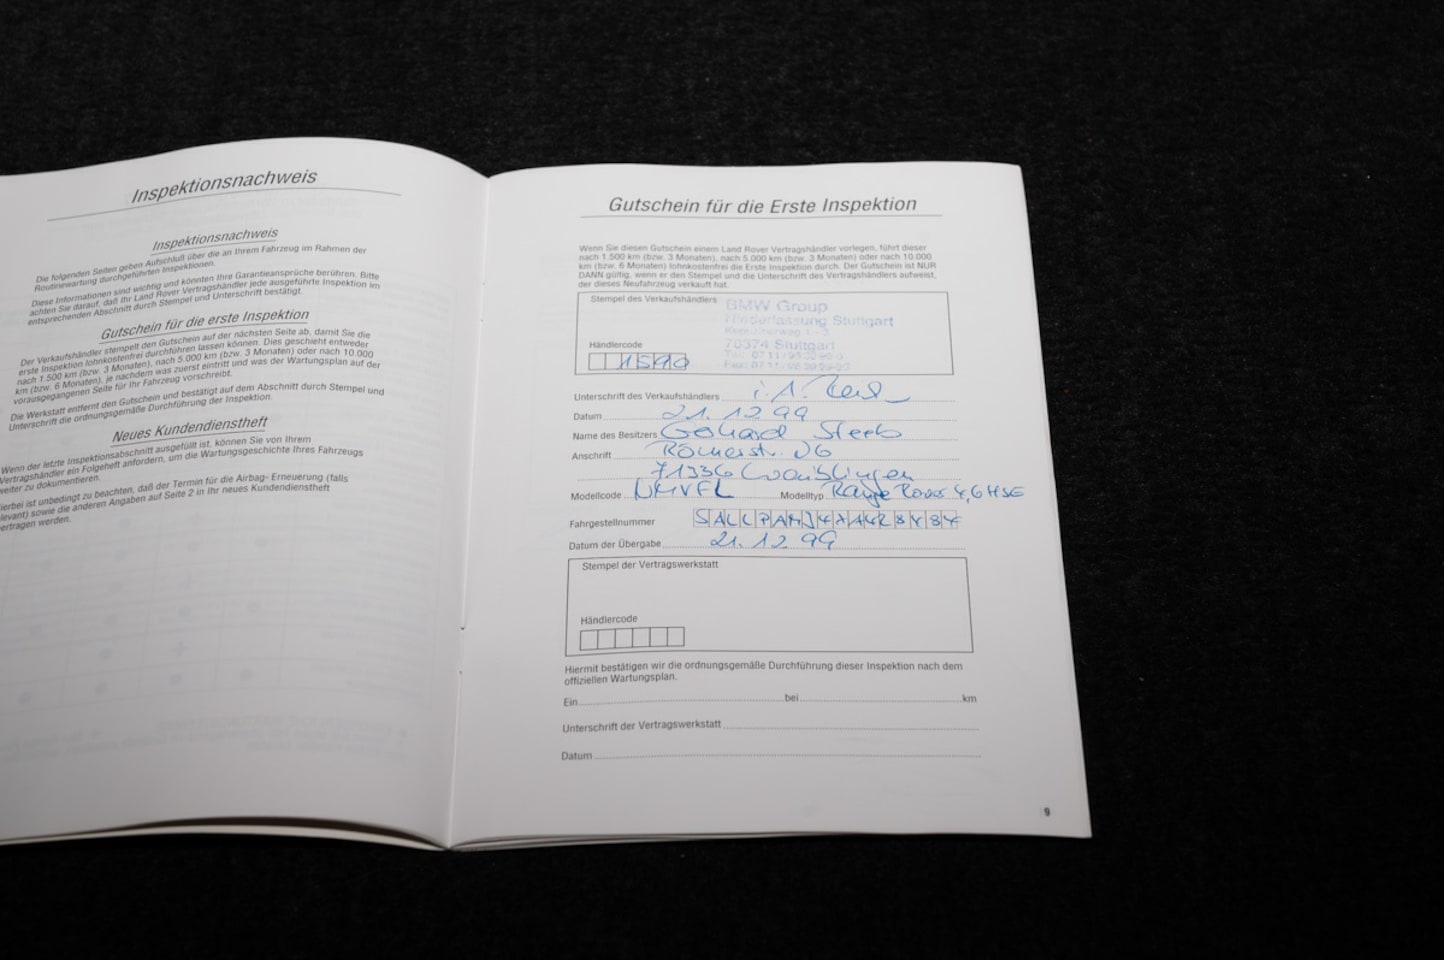 Inspektionsnachweis
Inspektionsnachweis
Die folgenden Seiten geben Aufschluß über die an Ihrem Fahrzeug im Rahmen der
Routinewartung durchgeführten Inspektionen.
Diese Informationen sind wichtig und könnten Ihre Garantieansprüche berühren. Bitte
achten Sie darauf, daß Ihr Land Rover Vertragshändler jede ausgeführte Inspektion im
entsprechenden Abschnitt durch Stempel und Unterschrift bestätigt.
Gutschein für die erste Inspektion
Der Verkaufshändler stempelt den Gutschein auf der nächsten Seite ab, damit Sie die
erste Inspektion lohnkostenfrei durchführen lassen können. Dies geschieht entweder
nach 1.500 km (bzw. 3 Monaten), nach 5.000 km (bzw. 3 Monaten) oder nach 10.000
km (bzw. 6 Monaten), je nachdem was zuerst eintritt und was der Wartungsplan auf der
vorausgegangenen Seite für Ihr Fahrzeug vorschreibt.
Die Werkstatt entfernt den Gutschein und bestätigt auf dem Abschnitt durch Stempel und
Unterschrift die ordnungsgemäße Durchführung der Inspektion.
Neues Kundendienstheft
Wenn der letzte Inspektionsabschnitt ausgefüllt ist, können Sie von Ihrem
Vertragshändler ein Folgeheft anfordern, um die Wartungsgeschichte Ihres Fahrzeugs
weiter zu dokumentieren.
ierbei ist unbedingt zu beachten, daß der Termin für die Airbag- Erneuerung (falls
levant) sowie die anderen Angaben auf Seite 2 in Ihr neues Kundendienstheft
ertragen werden.
Gutschein für die Erste Inspektion
Wenn Sie diesen Gutschein einem Land Rover Vertragshändler vorlegen, führt dieser
nach 1.500 km (bzw. 3 Monaten), nach 5.000 km (bzw. 3 Monaten) oder nach 10.000
km (bzw. 6 Monaten) lohnkostenfrei die Erste Inspektion durch. Der Gutschein ist NUR
DANN gültig, wenn er den Stempel und die Unterschrift des Vertragshändlers aufweist,
der dieses Neufahrzeug verkauft hat.
Stempel des Verkaufshändlers
BMW Group
Niederlassung Stuttgart
70374 Stuttgart
Händlercode
1590
Unterschrift des Verkaufshändlers i.A.
Datum 21.12.99
Name des Besitzers Steeb
Anschrift Römerstr. 06
71336 Waiblingen
Modellcode Modelltyp Range Rover 4,6 HSE
Fahrgestellnummer
Datum der Übergabe 21.12.99
Stempel der Vertragswerkstatt
Händlercode
Hiermit bestätigen wir die ordnungsgemäße Durchführung dieser Inspektion nach dem
offiziellen Wartungsplan.
Ein bei km
Unterschrift der Vertragswerkstatt
Datum
9